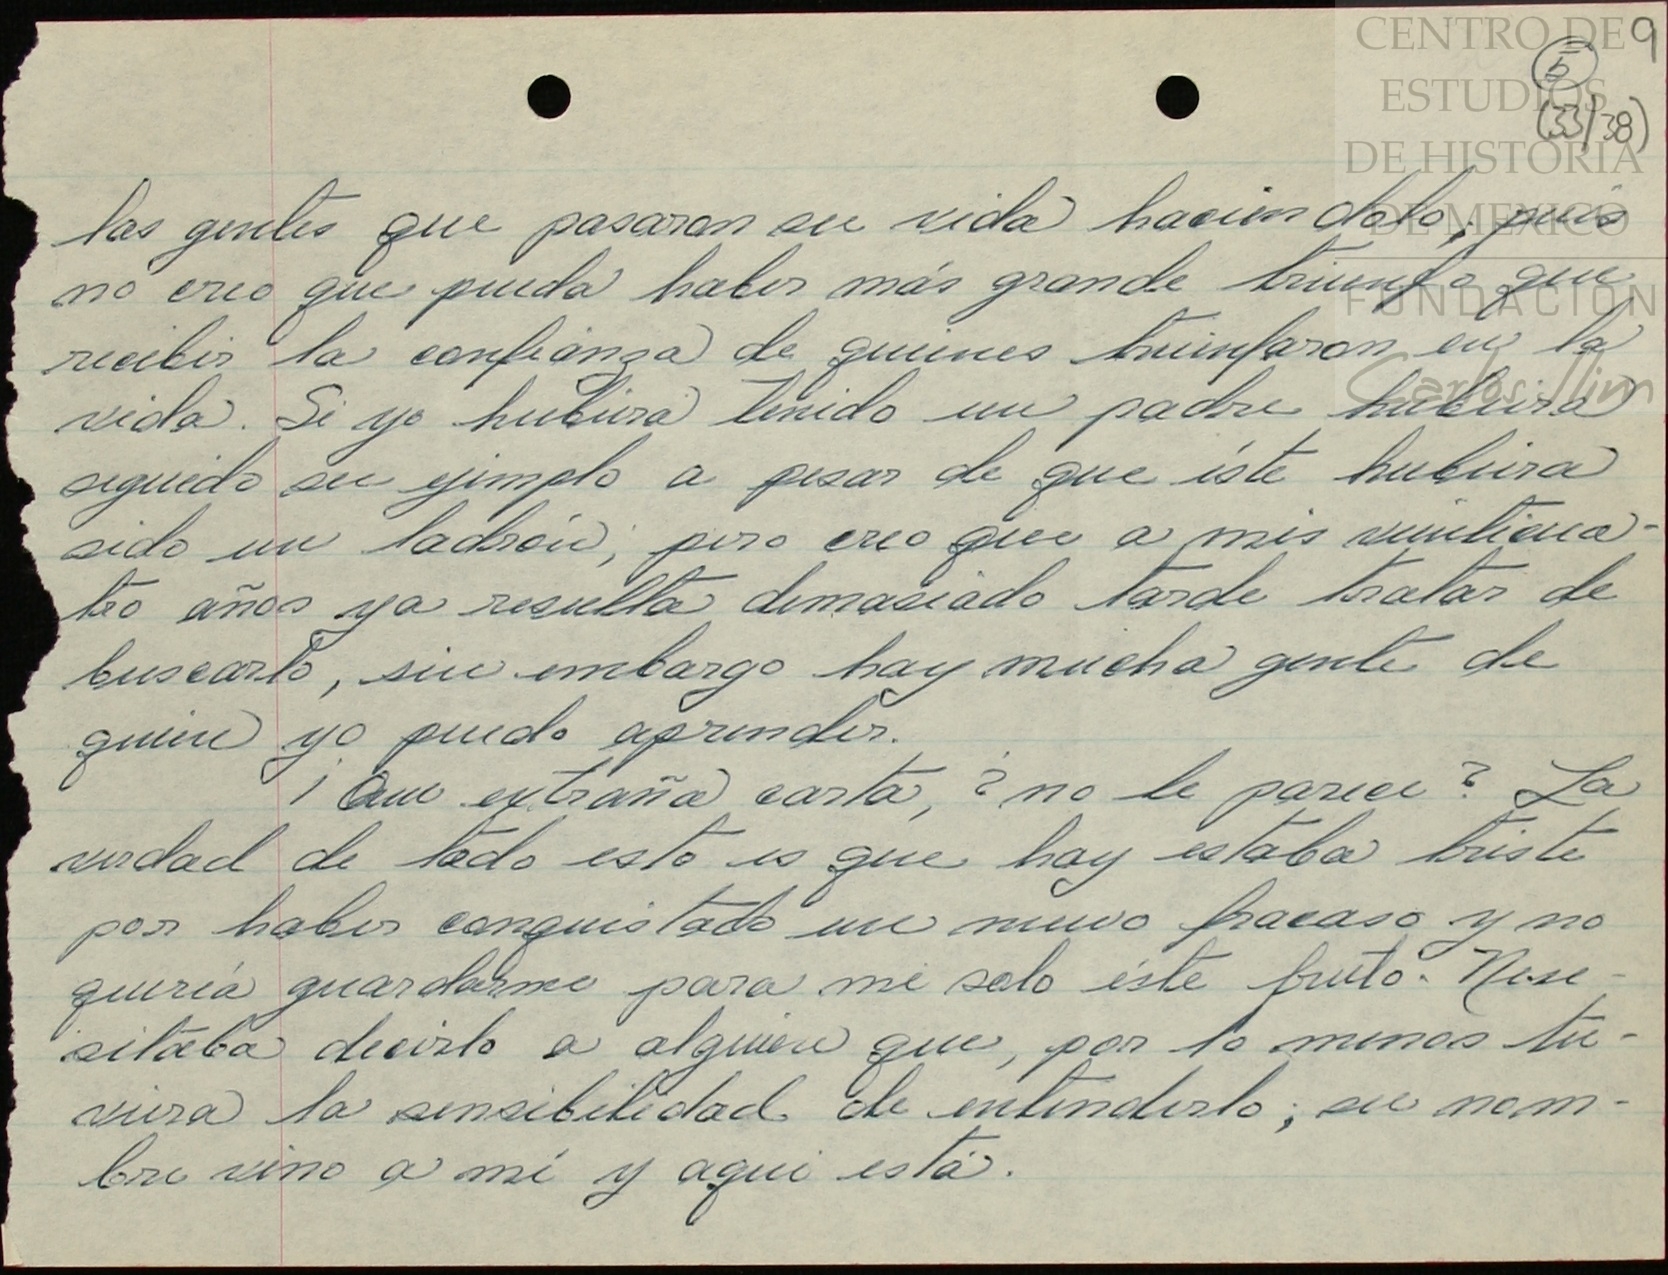 CENTRO DE
ESTUDIOS
DE HISTORIA
DE MEXICO
FUNDACIÓN
Carlos Slim
9
b
(33/38)
las gentes que pasaron su vida haciendolo; pués
no creo que pueda haber más grande triunfo que
recibir la confianza de quienes triunfaron en la
vida. Si yo hubiera tenido un padre hubiera
seguido su ejemplo a pesar de que éste hubiera
sido un ladrón; pero creo que a mis veinticua-
tro años ya resulta demasiado tarde tratar de
buscarlo, sin embargo hay mucha gente de
quien yo puedo aprender.
¡Que extraña carta, ¿no le parece? La
verdad de todo esto es que hoy estaba triste
por haber conquistado un nuevo fracaso y no
quería guardarme para mi solo éste fruto. Nese-
sitaba decirlo a alguien que, por lo menos tu-
viera la sensibilidad de entenderlo; su nom-
bre vino a mí y aqui está.